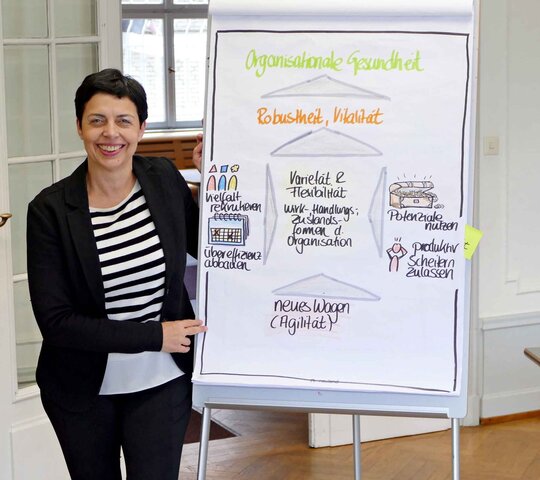 Organisationale Gesundheit
Robustheit, Vitalität
Varietät &
Flexibilität
Wirk-, Handlungs-,
Zustands-
formen d.
Organisation
Vielfalt
rekrutieren
Übereffizienz
abbauen
Potenziale
nutzen
Produktiv
Scheitern
zulassen
neues Wagen
(Agilität)